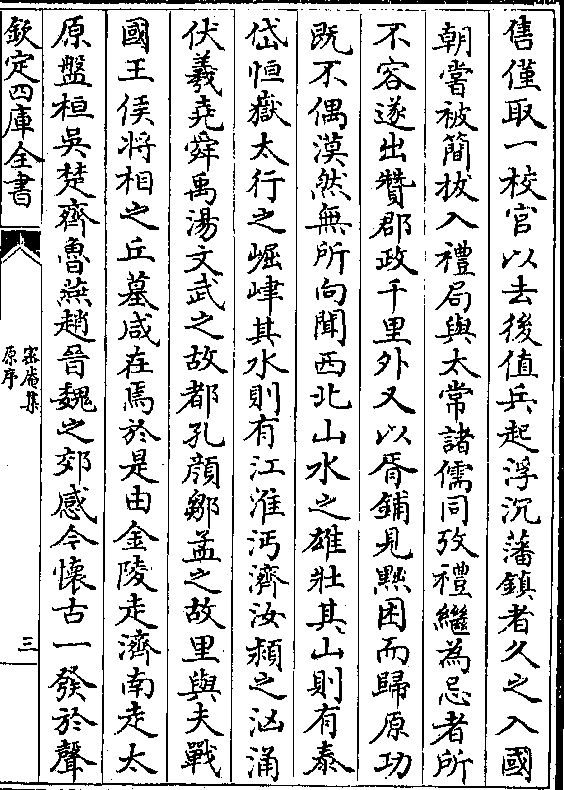 售僅取一校官以去後值兵起浮沉藩鎮者久之入國
朝嘗被簡拔入禮局與太常諸儒同攷禮繼為忌者所
不容遂出贊郡政千里外又以胥鋪見黜困而歸原功
既不偶漠然無所向聞西北山水之雄壯其山則有泰
岱恒嶽太行之崛嵂其水則有江淮沔濟汝潁之汹涌
伏羲堯舜禹湯文武之故都孔顔鄒孟之故里與夫戰
國王侯将相之丘墓咸在焉於是由金陵走濟南走太
原盤桓吳楚齊魯燕趙晉魏之郊感今懷古一發於聲
欽定四庫全書
密庵集
原序
三